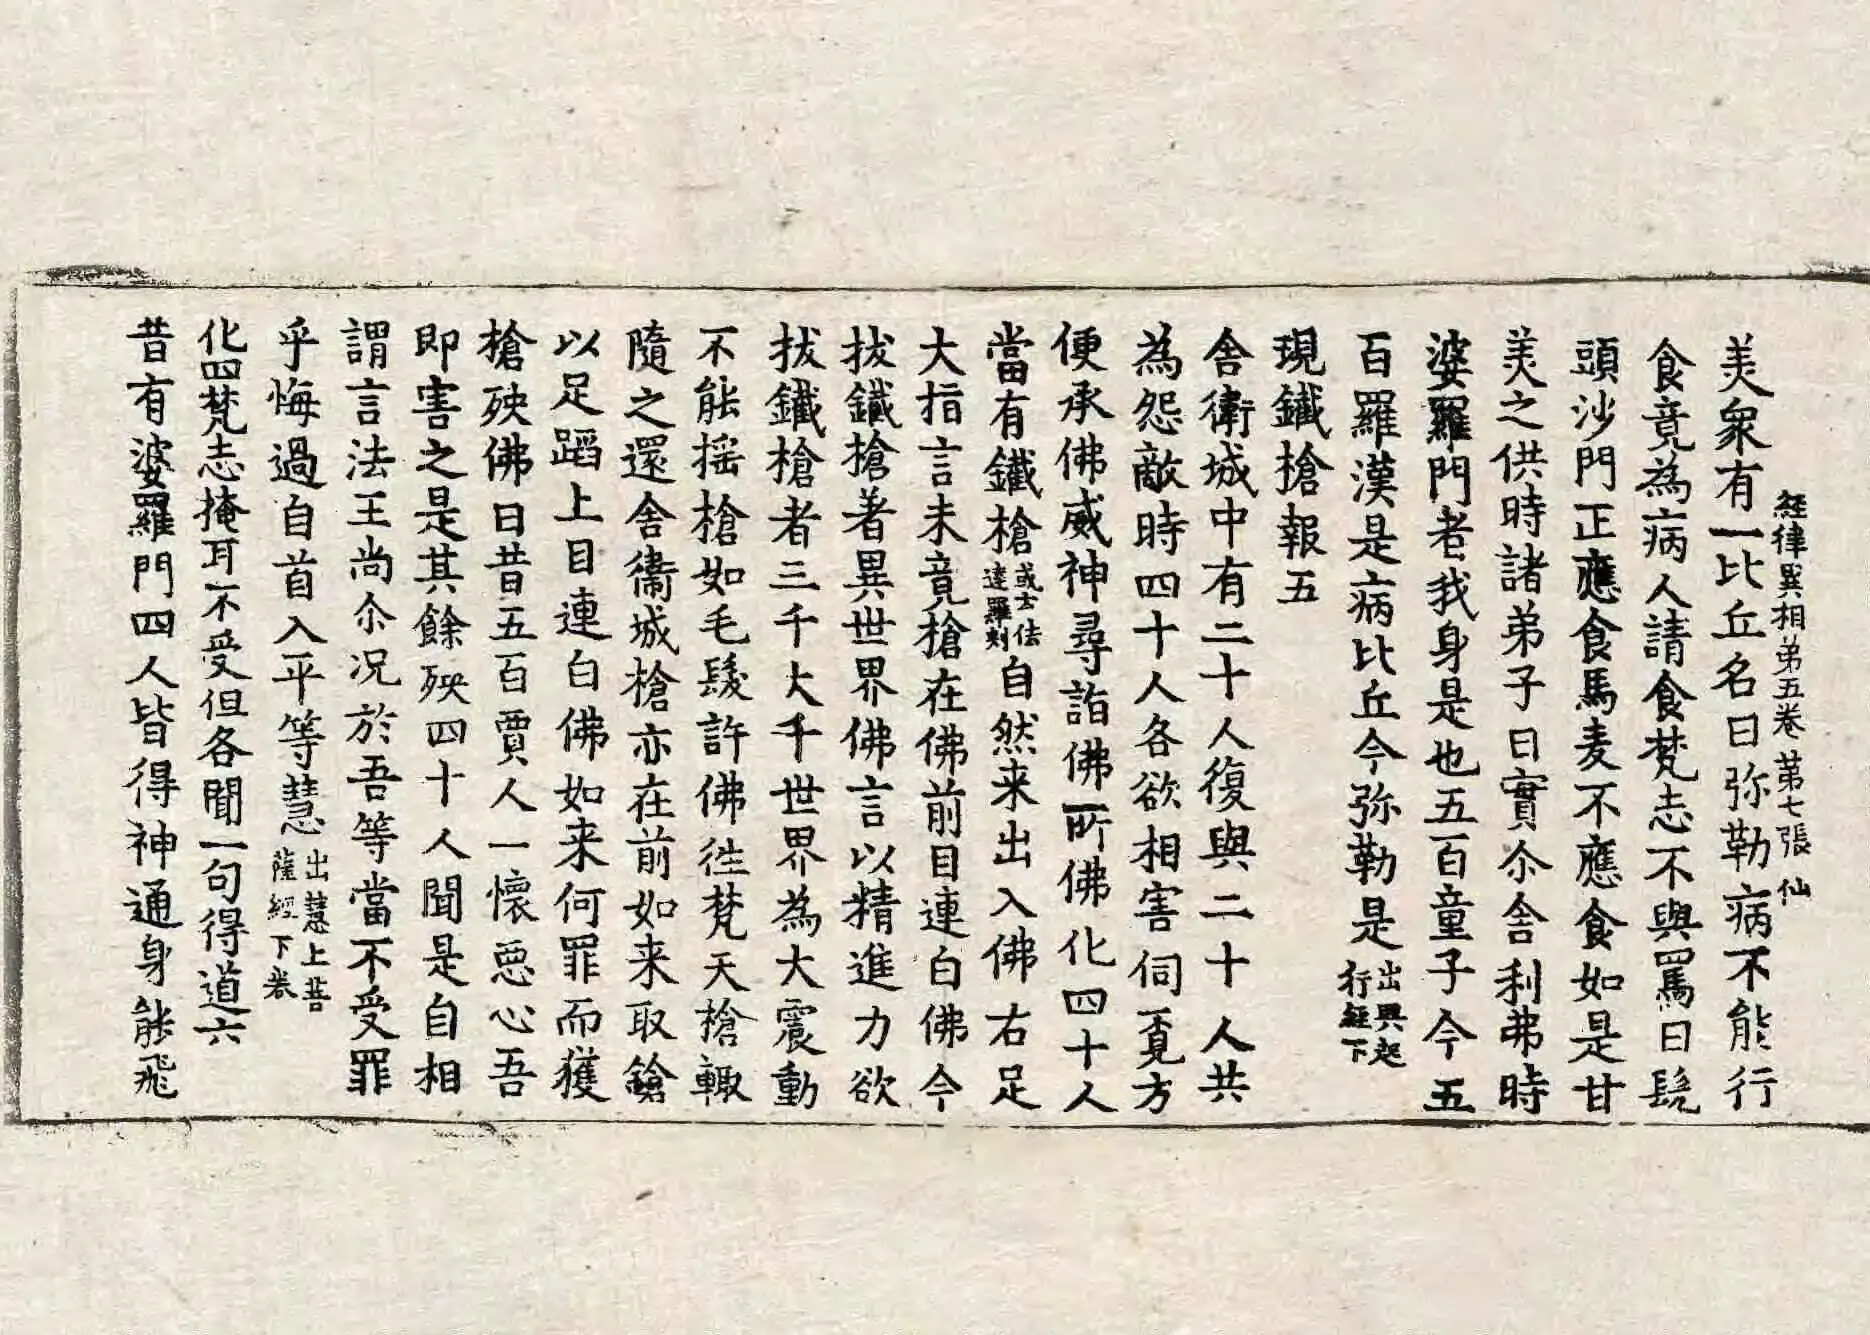 經律異相第五卷 第七張 仙
美衆有一比丘名曰弥勒病不能行
食竟為病人請食梵志不與罵曰髠
頭沙門正應食馬麦不應食如是甘
美之供時諸弟子曰實尒舍利弗時
婆羅門者我身是也五百童子今五
百羅漢是病比丘今弥勒是出興起行經下
現鐵槍報五
舍衛城中有二十人復與二十人共
為怨敵時四十人各欲相害伺覔方
便承佛威神尋詣佛所佛化四十人
當有鐵槍或云佉達羅刾自然来出入佛右足
大指言未竟槍在佛前目連白佛今
拔鐵槍著異世界佛言以精進力欲
拔鐵槍者三千大千世界為大震動
不能摇槍如毛髮許佛徃梵天槍輙
隨之還舍衞城槍亦在前如来取鎗
以足蹈上目連白佛如来何罪而獲
槍殃佛曰昔五百賈人一懷惡心吾
即害之是其餘殃四十人聞是自相
謂言法王尚尒况於吾等當不受罪
乎悔過自首入平等慧出慧上菩薩經下卷
化四梵志掩耳不受但各聞一句得道六
昔有婆羅門四人皆得神通身能飛